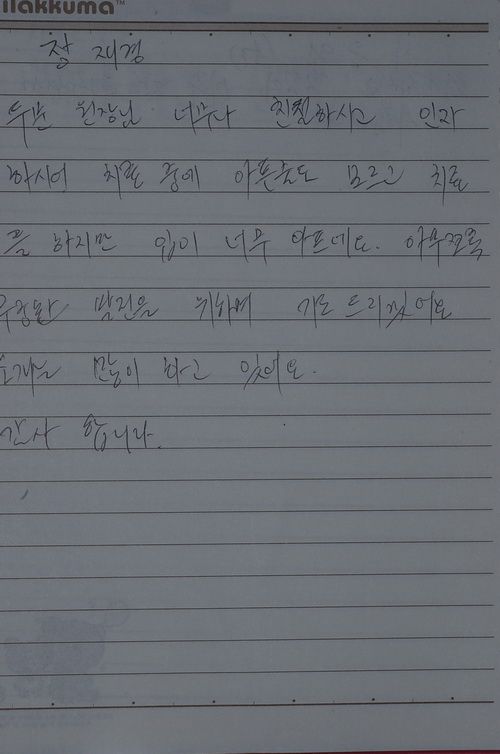 ilakkuma™
잘 재경
두분 원장님 너무나 친절하시고 인자
하시어 치료 중에 아픈줄도 모르고 치료
를 하지만 입이 너무 아프네요. 아무쪼록
무궁한 발전을 위하여 기도 드리겠어요
소개는 많이 하고 있어요.
감사 합니다.